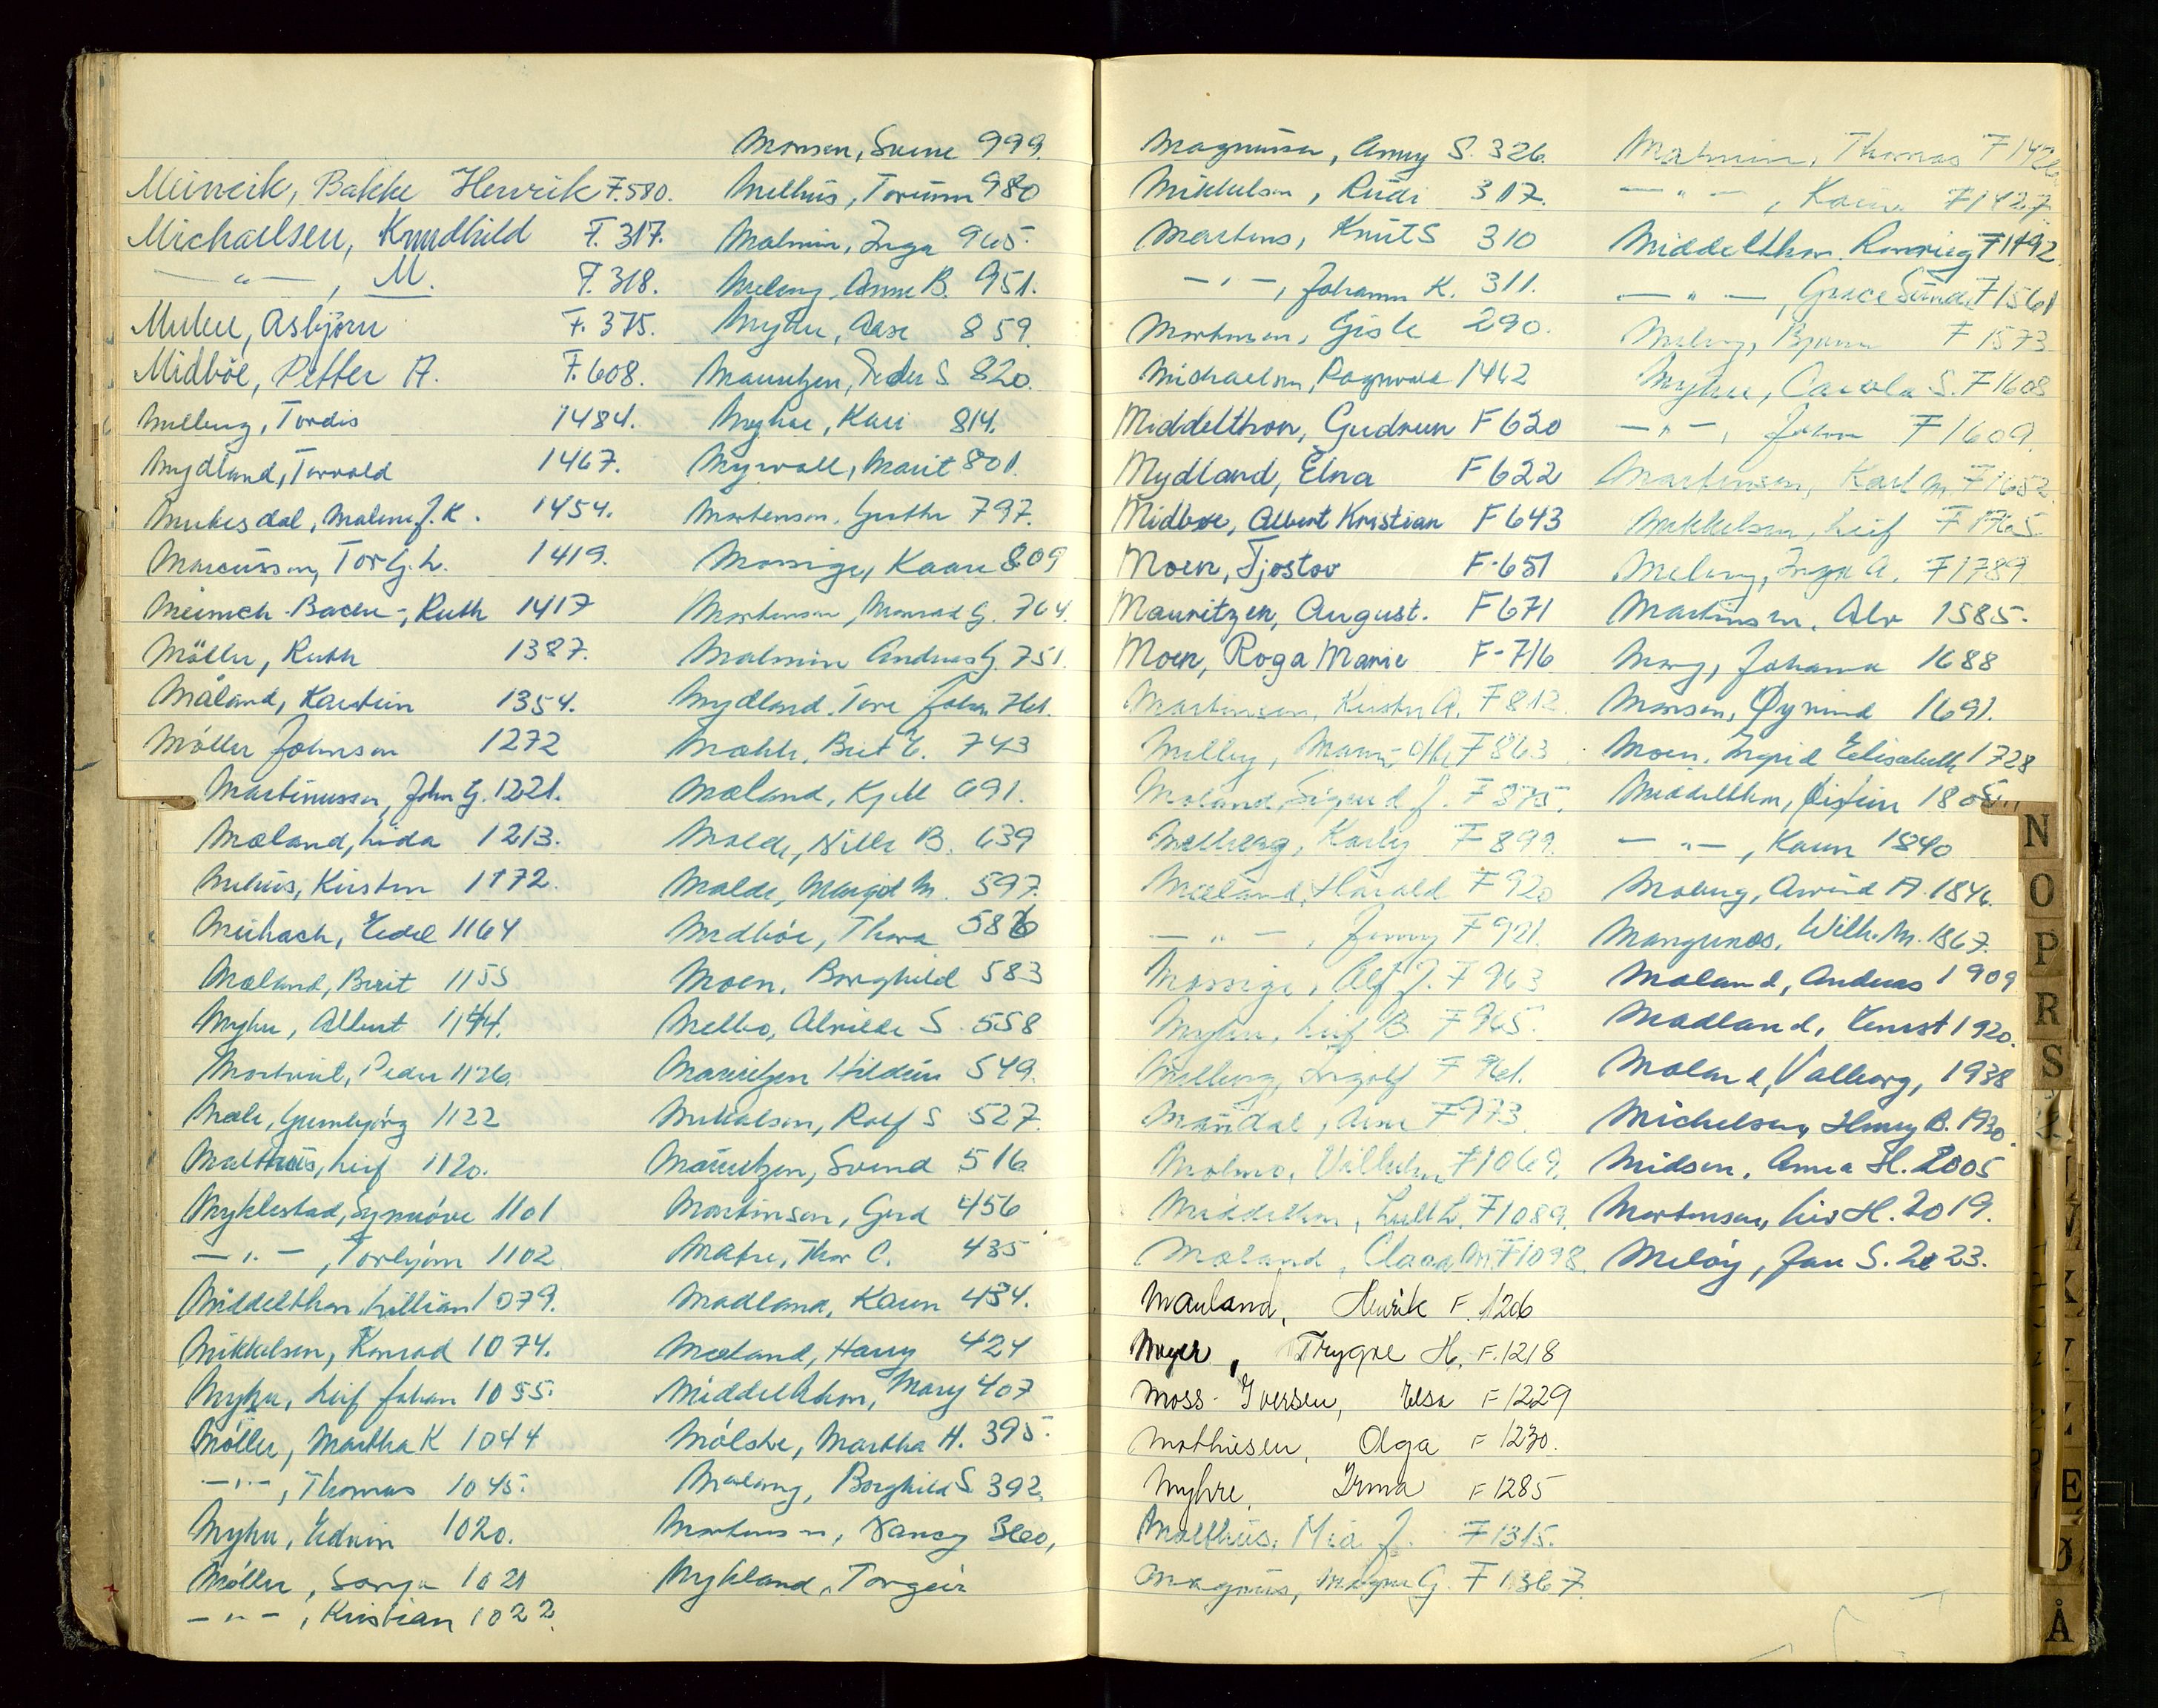 Meincik, Bakke Henrik F. 580.
Michaelsen, Knudhild F. 317.
— " — , M. F. 318.
Asbjörn F. 375.
Midböe, Petter A. F. 608.
Melberg, Tordis 1484.
Mydland, Torvald 1467.
Malene J. K. 1454.
Marcussen, Tor G. L. 1419.
Meinich-Bache, Ruth 1417
Möller, Ruth 1387.
Måland, Karstein 1354.
Möller Johnsen 1272
Martinussen, John G. 1221.
Mæland, Lida 1213.
Melhus, Kirsten 1172.
Meihack, Edel 1164
Mæland, Berit 1155
Myhre, Albert 1144.
Peder 1126.
Mæle, Gunnbjörg 1122
Malthus, Leif 1120.
Myklestad, Synnöve 1101
— " — , Torbjörn 1102
Middelthon, Lillian 1079.
Mikkelsen, Konrad 1074.
Myhre, Leif Johan 1055.
Möller, Martha K 1044
— " — , Thomas 1045.
Myhre, Edvin 1020.
Möller, Sonja 1021
— " — , Kristian 1022.
Monsen, Svene 999.
Melhus, Torunn 980
Malmin, Inga 965.
Meling, Anne B. 951.
Myhre, Aase 859.
Mauritzen, Peder S. 820.
Myhre, Kari 814.
Myrvoll, Marit 801.
Mortensen, Grethe 797.
Mossige, Kaare 809
Mortensen, Monrad G. 764.
Malmin Andreas G. 751.
Mydland, Tore Johan 761.
Mæhle, Berit E. 743
Mæland, Kjell 691.
Molde, Nille B. 639
Malde, Margot M. 597.
Midböe, Thora 586
Moen, Borghild 583
Melbo, Alvilde S. 558
Mauritzen Hildur 549.
Mikalsen, Rolf S 527.
Mauritzen, Svend 516
Martinsen, Gerd 456
Matre, Thor C. 435
Madland, Karen 434.
Mæland, Harry 424
Middelthon, Mary 407
Mölstre, Martha H. 395.
Borghild S 392.
Mortensen, Nancy
Mykland, Torgeir
Magnussen, Anny S. 326.
Mikkelsen, Rudi 317.
Martens, Knut S 310
— " — , Johann K. 311.
Mortensen, Gisle 290.
Michaelsen, Ragnvald 1462
Middelthon, Gudrun F 620
Mydland, Elna F 622
Midböe, Albert Kristian F 643
Moen, Tjostov F-651
Mauritzen, August. F 671
Moen, Roga Marie F-716
Martinsen, Kirsten A. F 812.
F 863
Mæland, Sigurd J. F 875.
Melberg, Karly F 899.
Mæland, Harald F 920
— " — , Jenny F 921.
Mossige, Alf J. F 963
Myhre, Leif B. F 965.
Melberg, Ingolf F 961.
Mandal, Arne F 973.
Malmo, Vilhelm F 1069.
Middelthon, F 1089.
Mæland, Clara M. F 1098.
Mauland, Henrik F. 1206
Meyer, Trygve H. F. 1218
Moss-Iversen, Elsa F 1229
Mathiesen, Olga F 1230.
Myhre, Irma F 1285
Malthus, Mia J. F 1315.
Magnus, Magne G. F 1367.
Malmin, Thomas F 1426
— " — , Karin F 1427.
Middelthon F 1492.
— " — , Grace F 1561
Meling, Bjarne F 1573
Myhre, Carola S. F 1608
— " — , John F 1609
Martinsen, Karl M. F 1652.
Mikkelsen, Leif F 1765.
Meling, Inga A. F 1789
Martinsen, Alv 1585.
Johanna 1688
Monsen, Öyvind 1691.
Moen, Ingrid Elisabeth 1728
Middelthon, Öistein 1805
— " — , Karen 1840
Moberg, Arvid A. 1846.
Mangenes, Wilh. M. 1867.
Mæland, Andreas 1909
Madland, Ernst 1920.
Mæland, Valborg, 1938
Michelsen, Henry B.
Midsem, Anna H. 2005
Mortensen, Liv H. 2019.
Melöy, Jan S. 2023.
N
O
P
R
S
E
Ø
Å